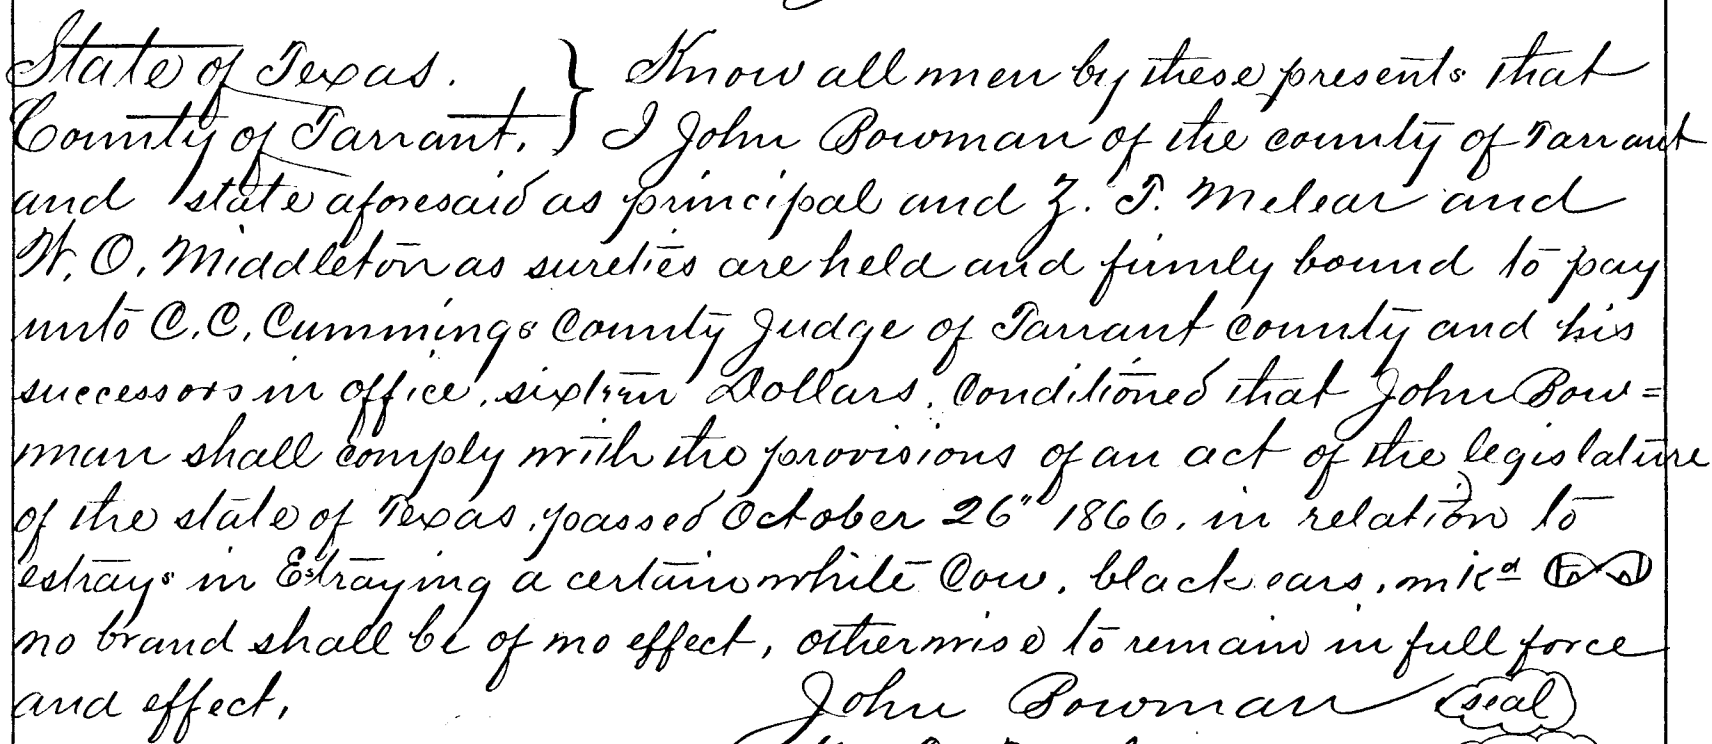 State of Texas. } Know all men by these presents that
County of Tarrant. } I John Bowman of the county of Tarrant
and state aforesaid as principal and Z. T. Melear and
W. O. Middleton as sureties are held and firmly bound to pay
unto C. C. Cummings County Judge of Tarrant county and his
successors in office, sixteen Dollars. Conditioned that John Bow=
man shall comply with the provisions of an act of the legislature
of the state of Texas, passed October 26" 1866. in relation to
estrays in Estraying a certain white Cow, black ears, mkd
no brand shall be of no effect, otherwise to remain in full force
and effect,
John Bowman (seal)